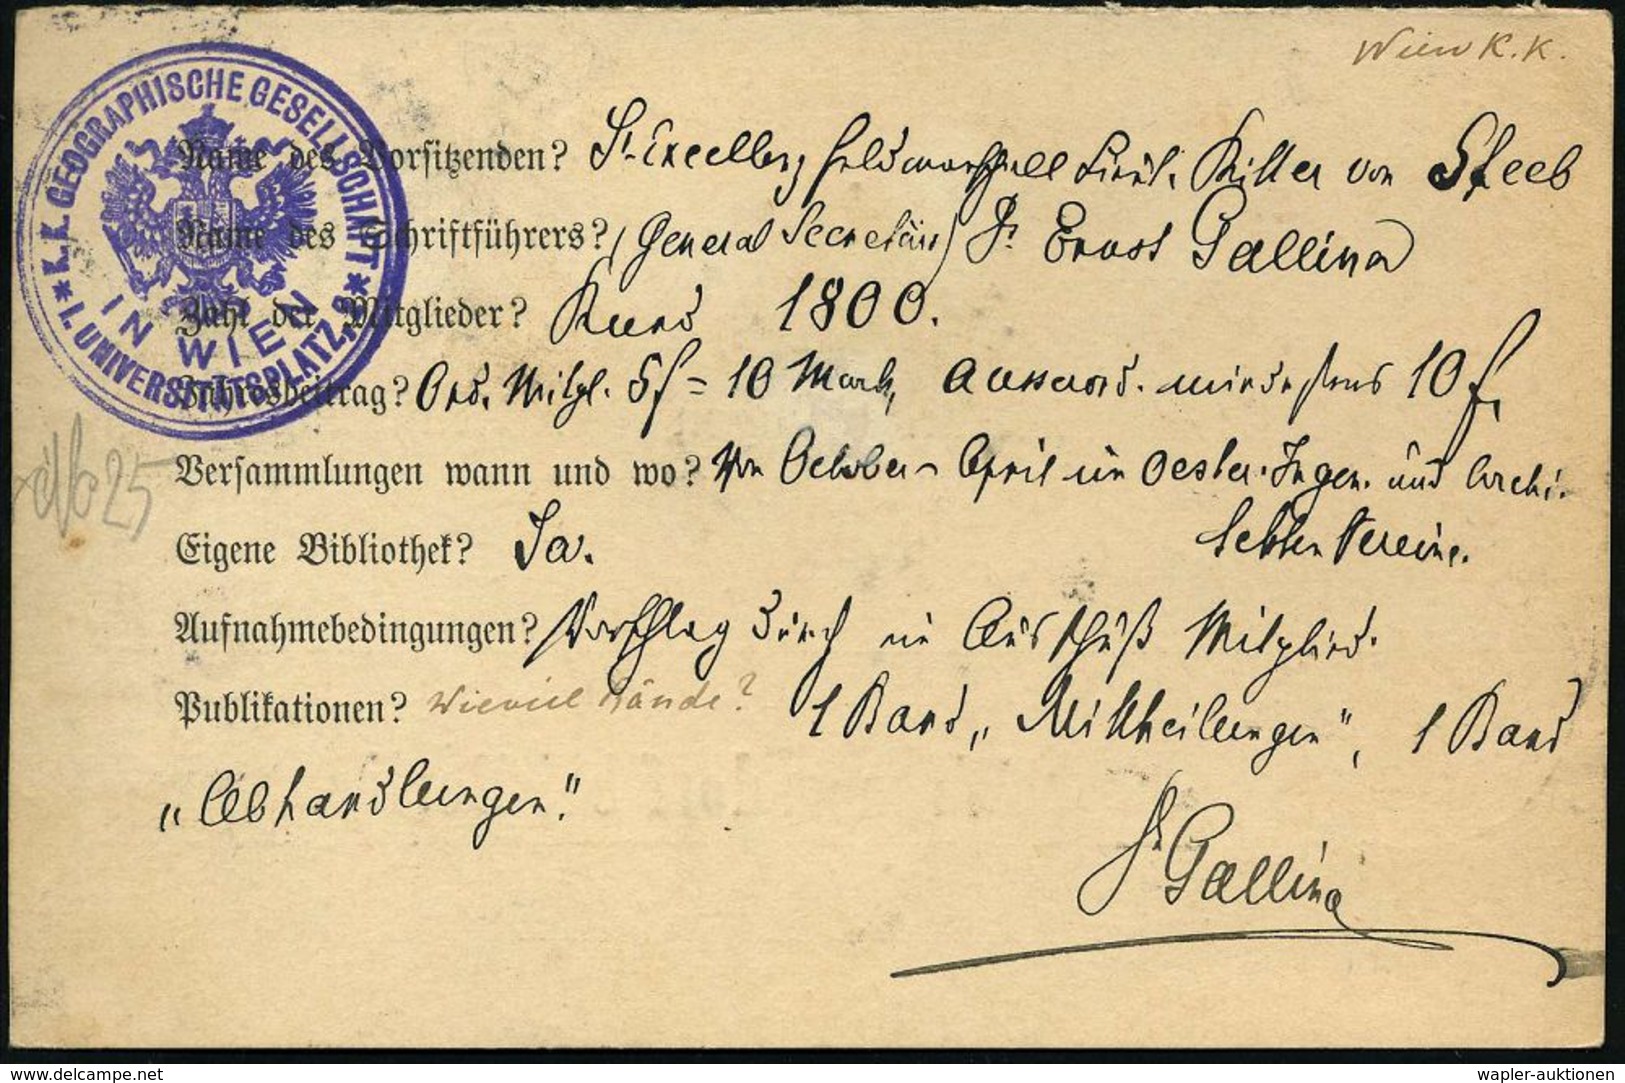 Wien K.K.
K. K. GEOGRAPHISCHE GESELLSCHAFT
IN WIEN
* I. UNIVERSITÄTSPLATZ, 2 *
Name des Vorsitzenden? Sr. Excellenz Feldmarschall Lieut. Ritter von Steeb
Name des Schriftführers? (General Secretär) Dr Ernst Gallina
Zahl der Mitglieder? Rund 1800.
Jahresbeitrag? Ord. Mitgl. 5f = 10 Mark, Ausserord. mindestens 10 f.
Versammlungen wann und wo? Von October - April im Oester. Ingen. und Archi-
tekten Vereine.
Eigene Bibliothek? Ja.
Aufnahmebedingungen? Vorschlag durch ein Ausschuß Mitglied.
Publikationen? Wieviel Bände? 1 Band „Mittheilungen", 1 Band
„Abhandlungen".
Dr Gallina
25
www.delcampe.net
wapler-auktionen